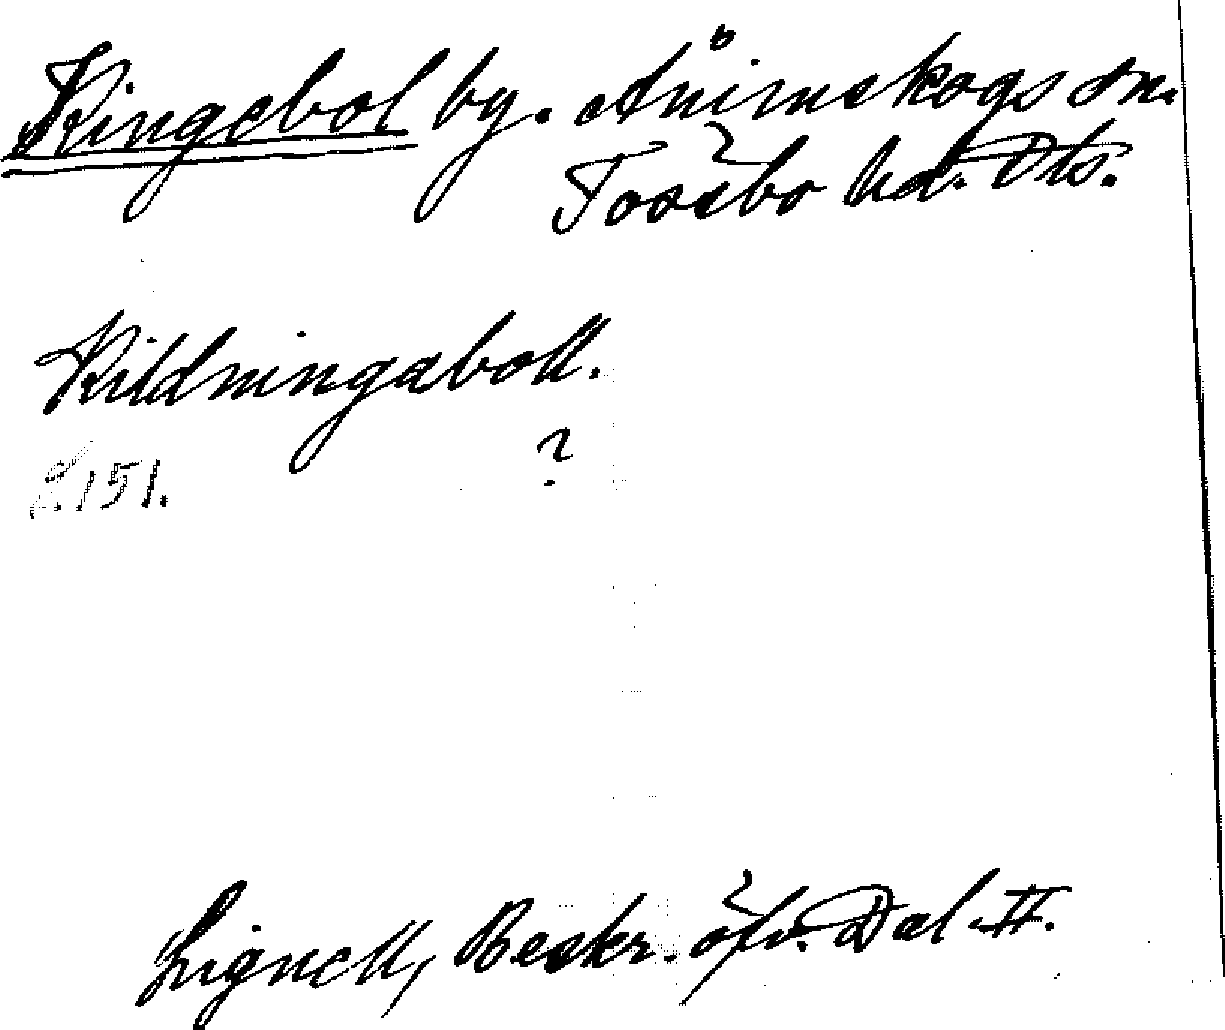 Ringebol by. Ånimskogs sn.
Tössbo hd. Dls.
Rildningaboll.
?
s. 151.
Lignell, Beskr. öfv. Dal II.